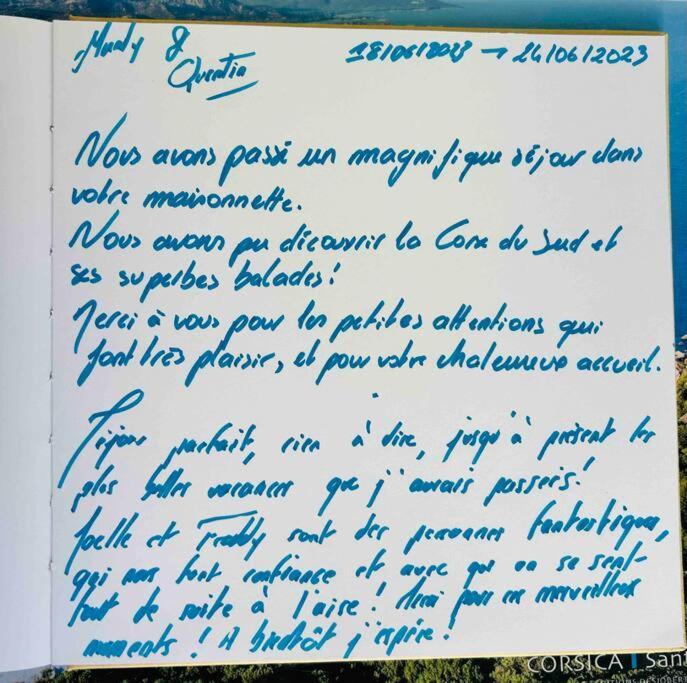 & Quentin
18/06/2023 → 24/06/2023
Nous avons passé un magnifique séjour dans
votre maisonnette.
Nous avons pu découvrir la Corse du Sud et
ses superbes balades!
Merci à vous pour les petites attentions qui
font très plaisir, et pour votre chaleureux accueil.
Séjour parfait, rien à dire, jusqu'à présent les
plus belles vacances que j'aurais passers!
Joelle et Freddy sont des personnes fantastiques,
qui nous font confiance et avec qui on se sent
tout de suite à l'aise! Merci pour ces merveilleux
moments! A bientôt j'espère!
CORSICA | Sant